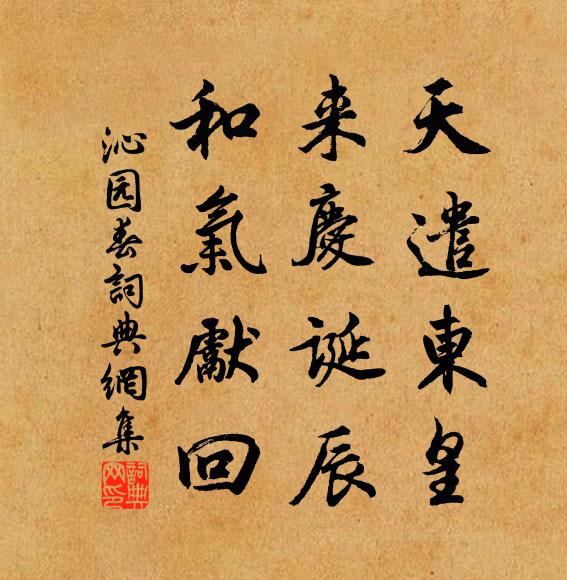 天遣東皇
来慶誕辰
和氣獻回
沁园春詞典網集
詞典网印